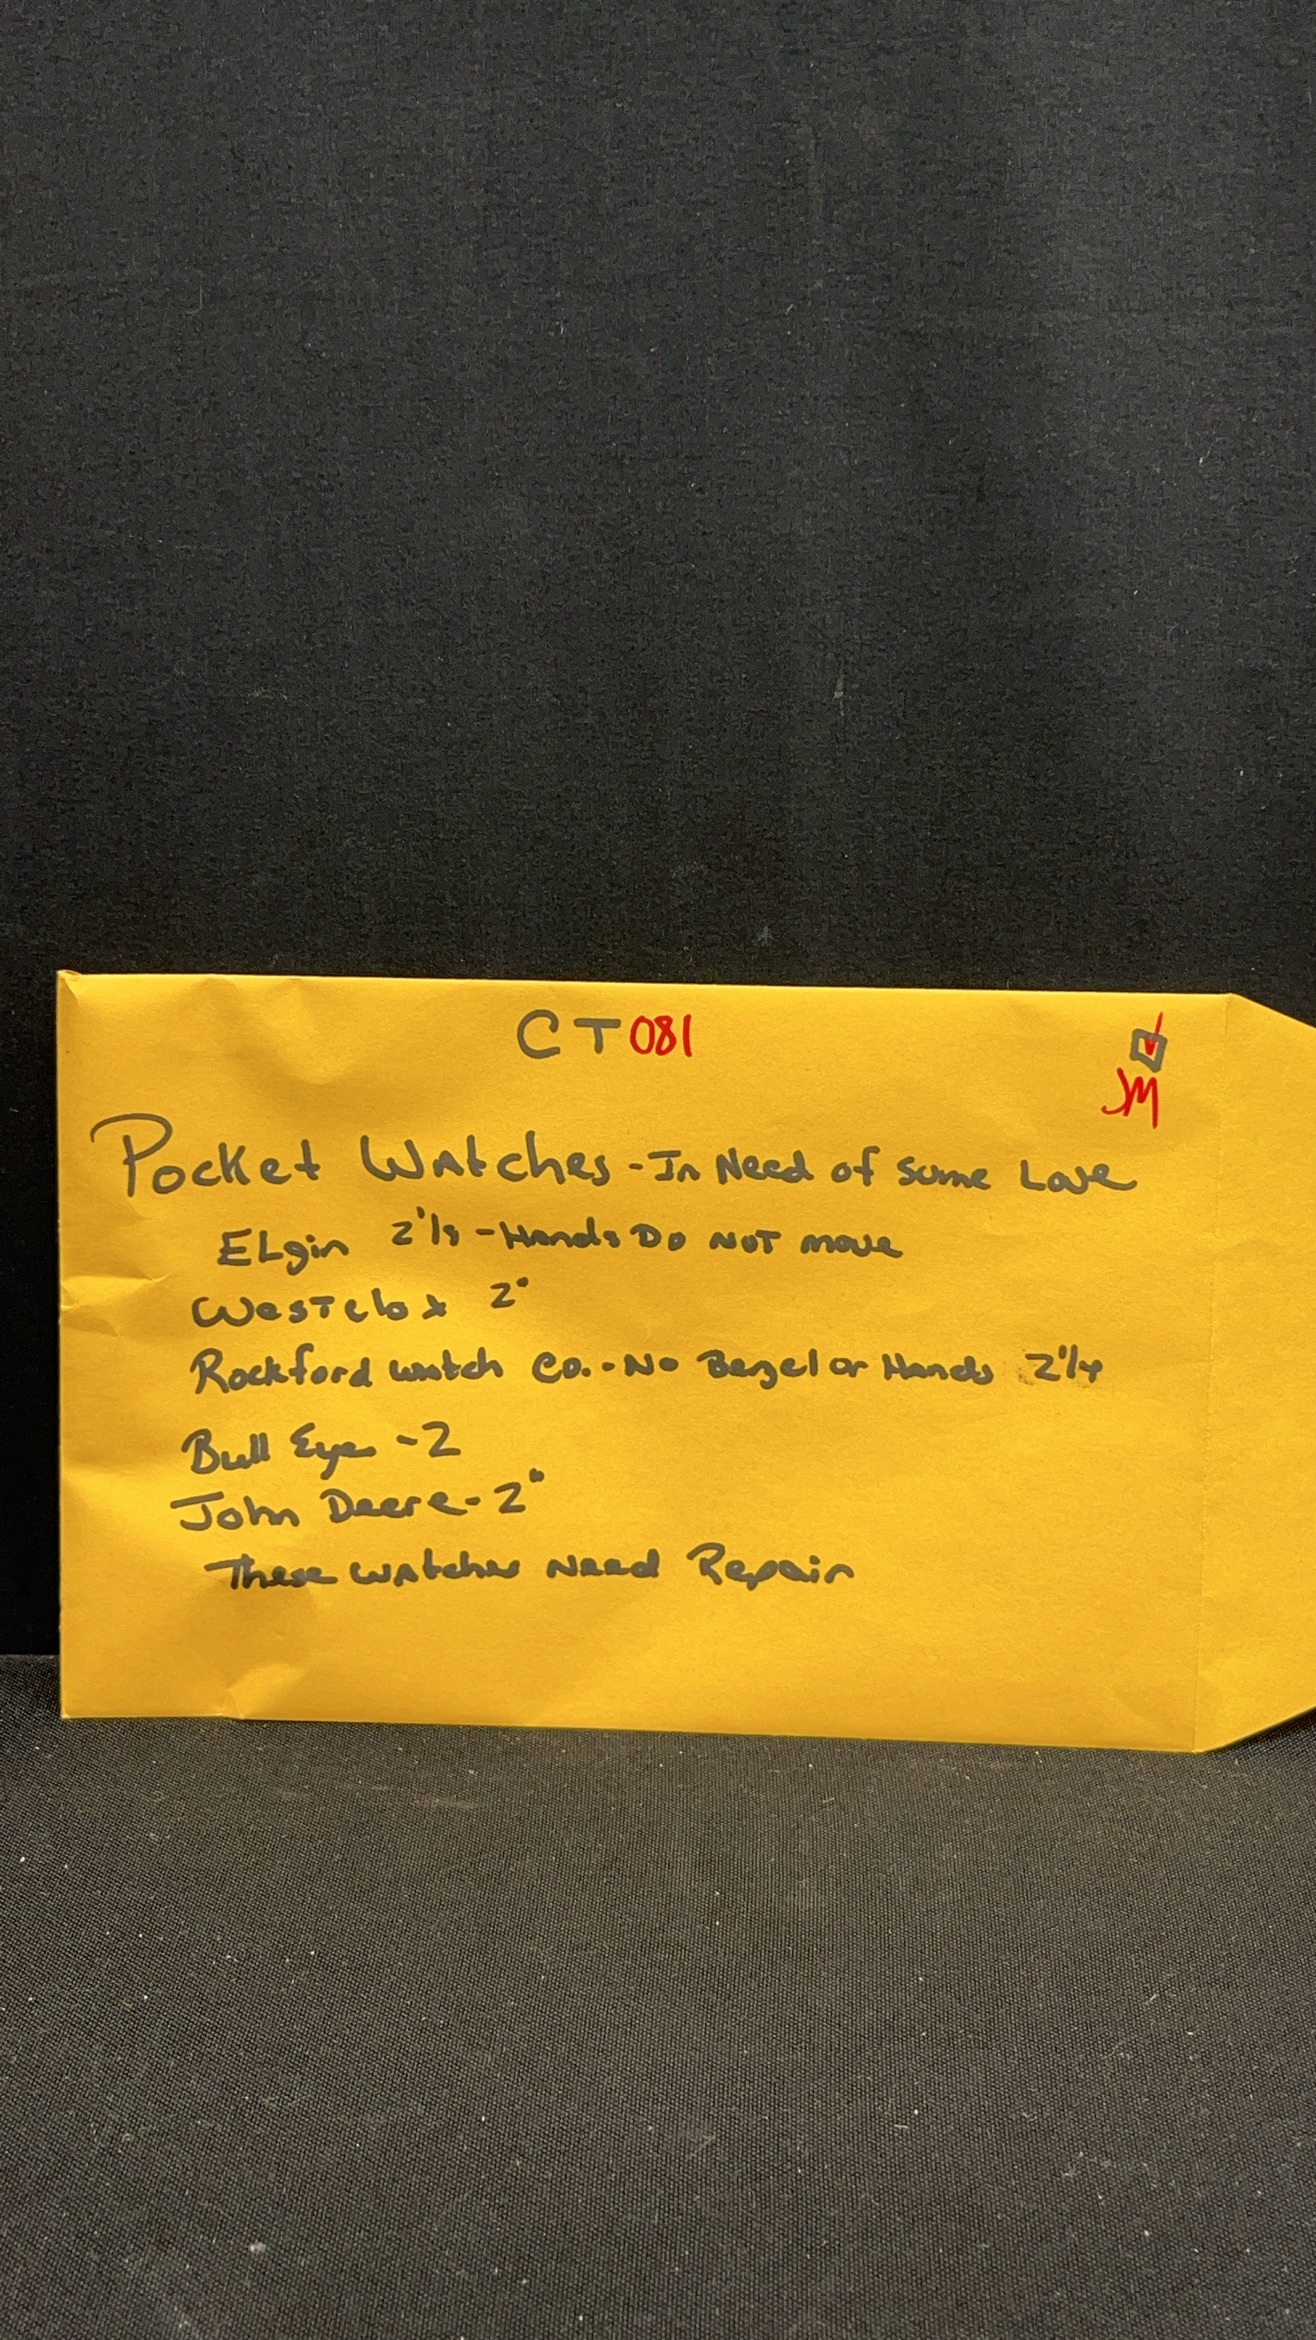 CT081
JM
Pocket Watches - In Need of Some Love
ELgin 2 1/8 - Hands Do NOT move
Westclox 2"
Rockford watch Co. - No Bezel or Hands 2 1/4
Bull Eye - 2
John Deere - 2"
These Watches Need Repair